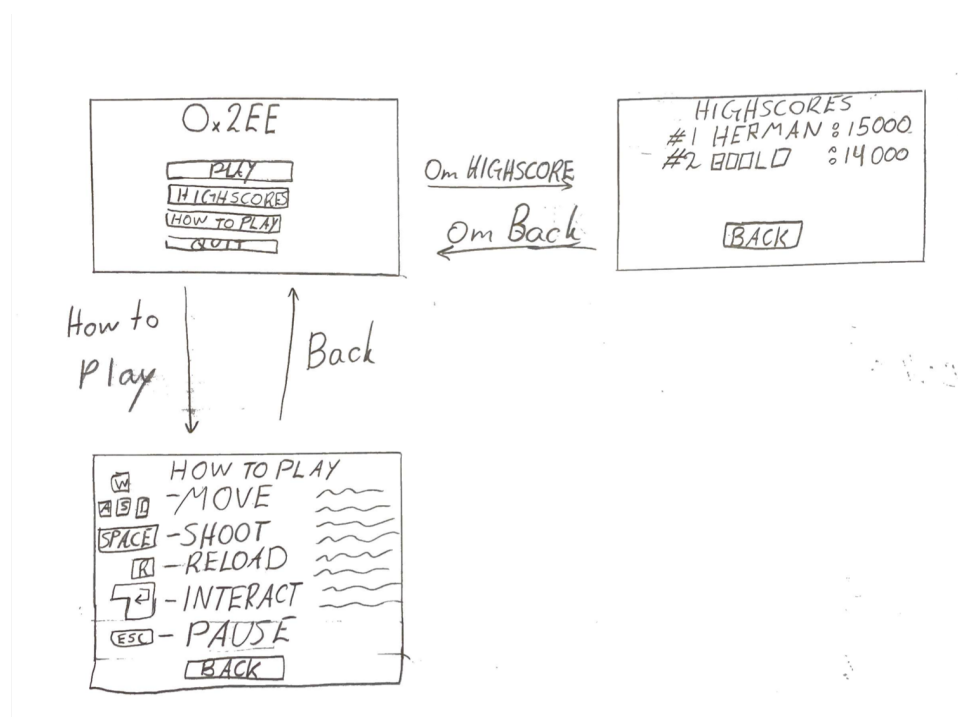 0x2EE
PLAY
HIGHSCORES
HOW TO PLAY
QUIT
Om HIGHSCORE
Om Back
HIGHSCORES
#1 HERMAN : 15000
#2 : 14000
BACK
How to
Play
Back
HOW TO PLAY
W
A S D - MOVE
SPACE - SHOOT
R - RELOAD
- INTERACT
ESC - PAUSE
BACK